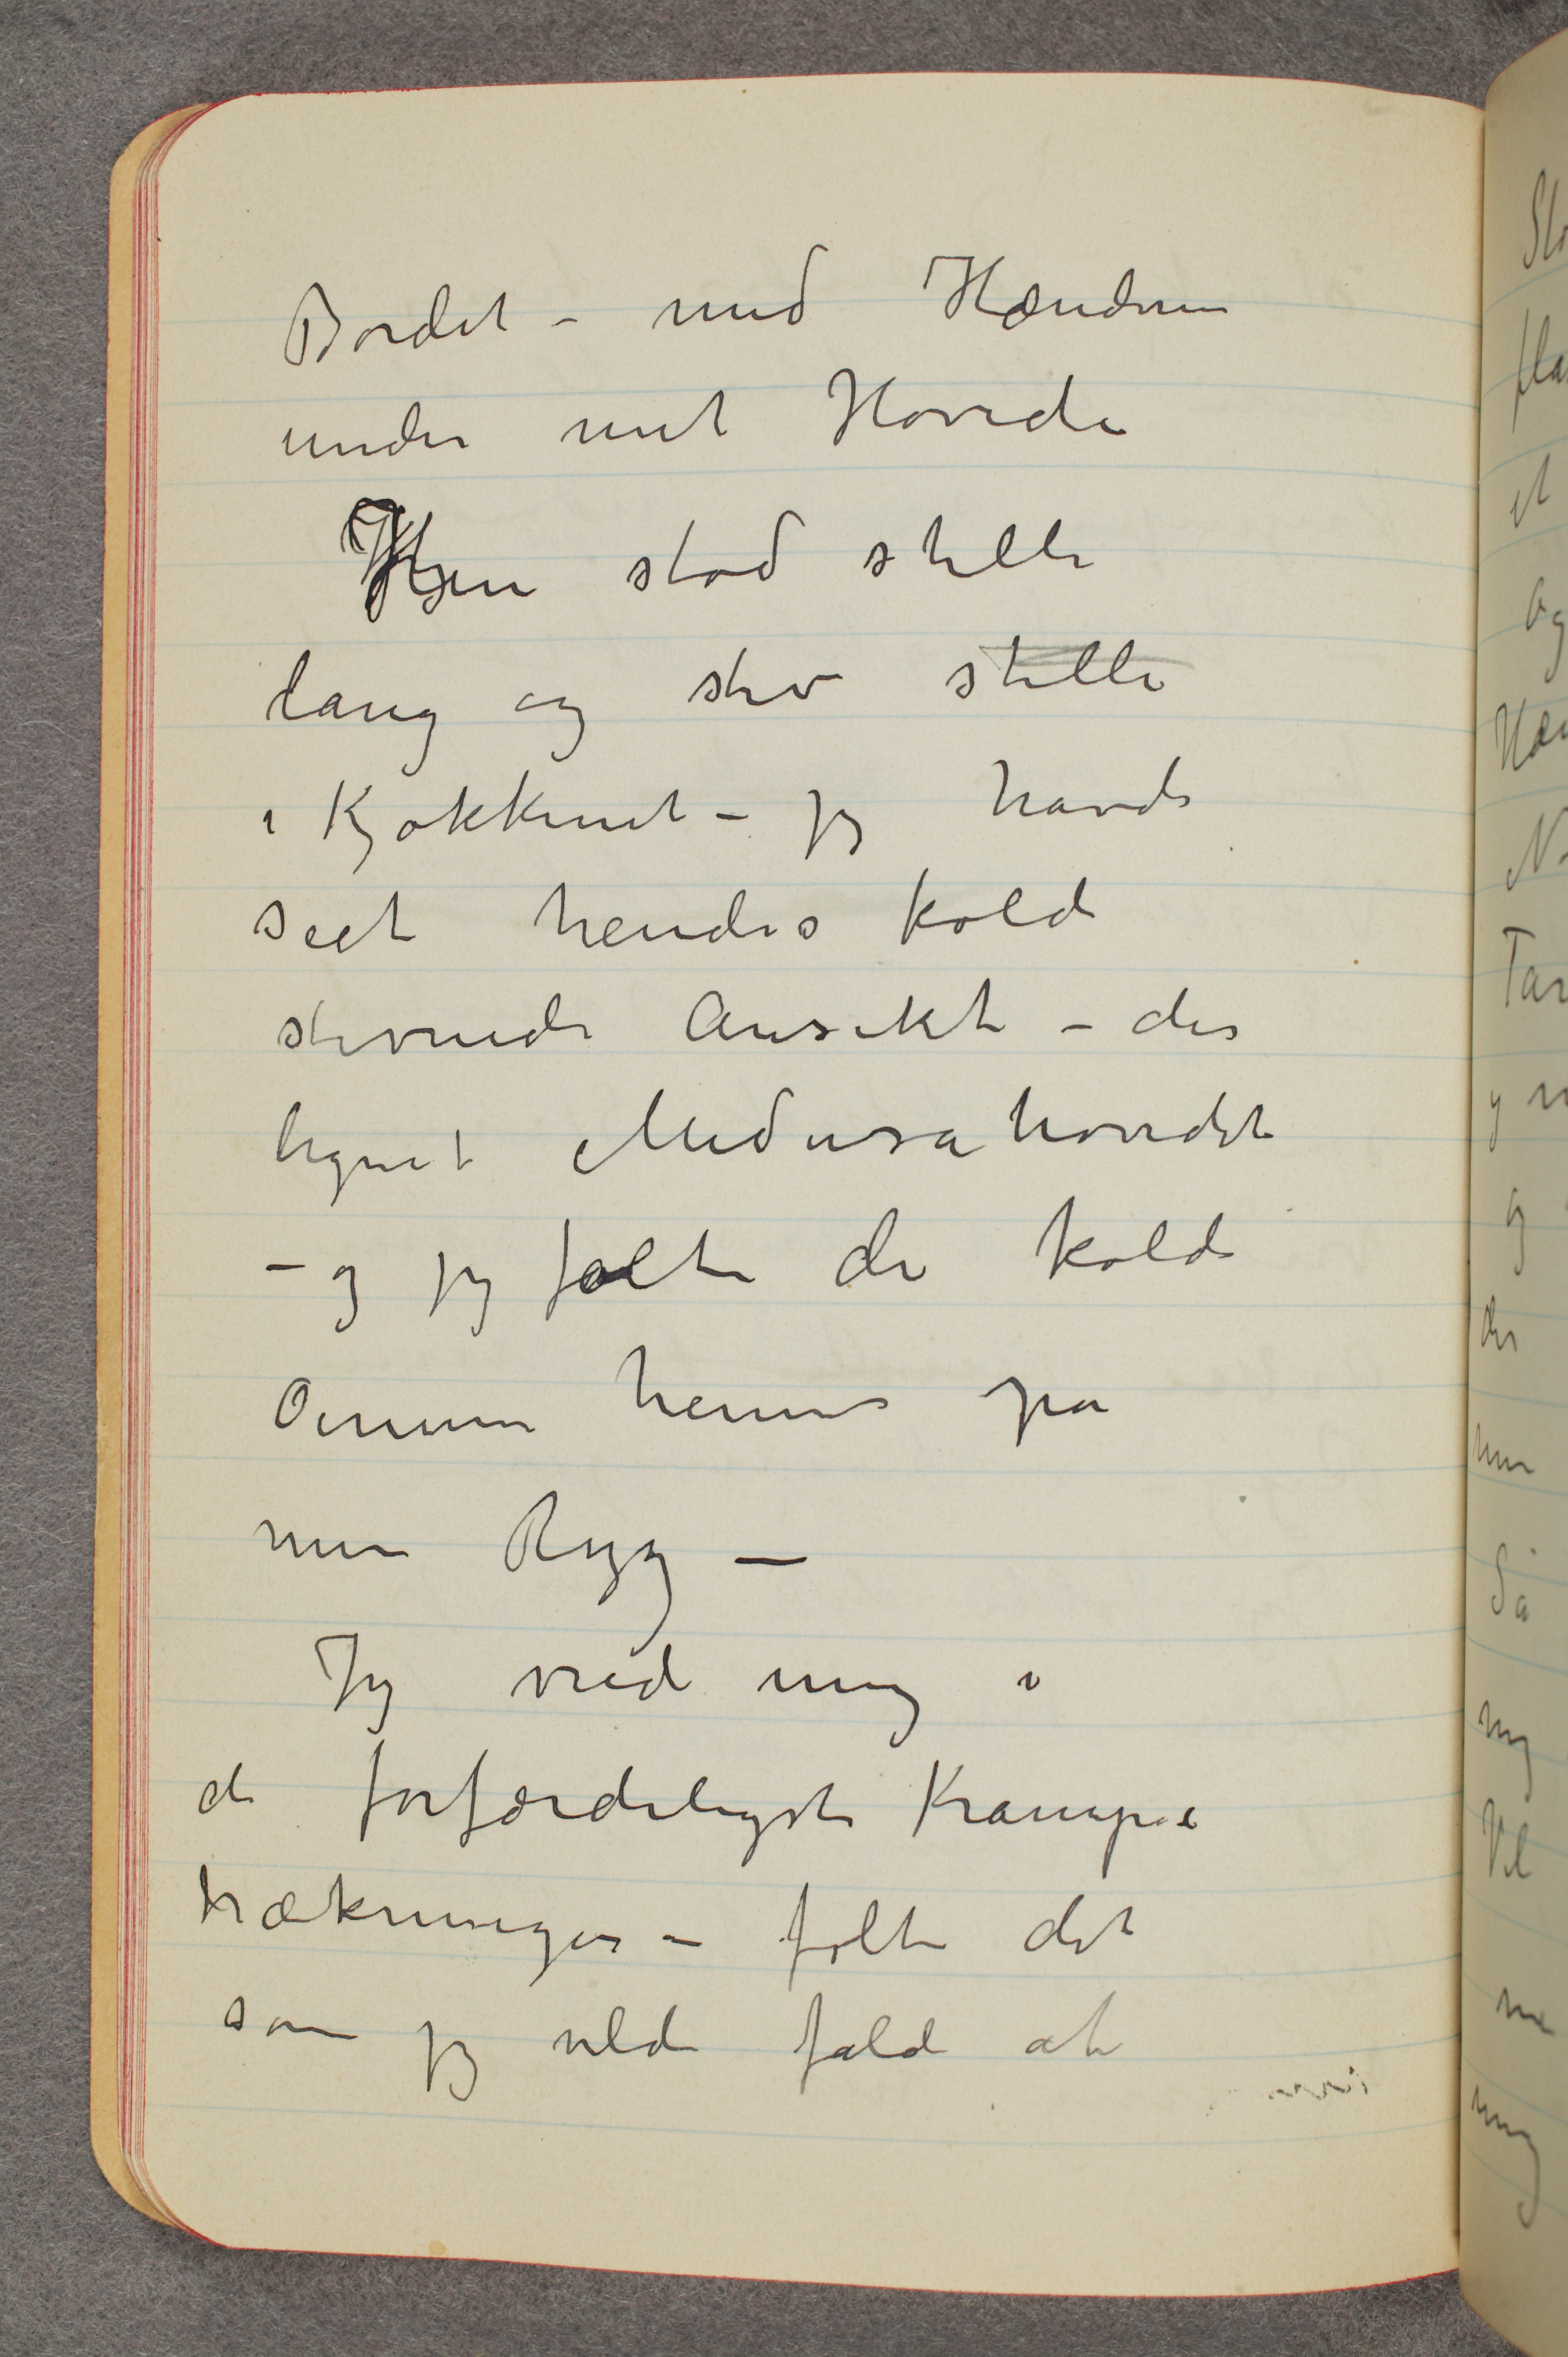 Bordet – med Hænderne
under mit Hovede
Hun stod stille
lang og stiv stille
i Kjøkkenet – jeg havde
seet hendes kolde
stivnede Ansikt – der
lignet Medusahovedet
– og jeg følte de kolde
Øinene hennes på
min Ryg –
Jeg vred mig i
de forfærdeligste Krampe
trækninger – følte det
som jeg vilde falde at